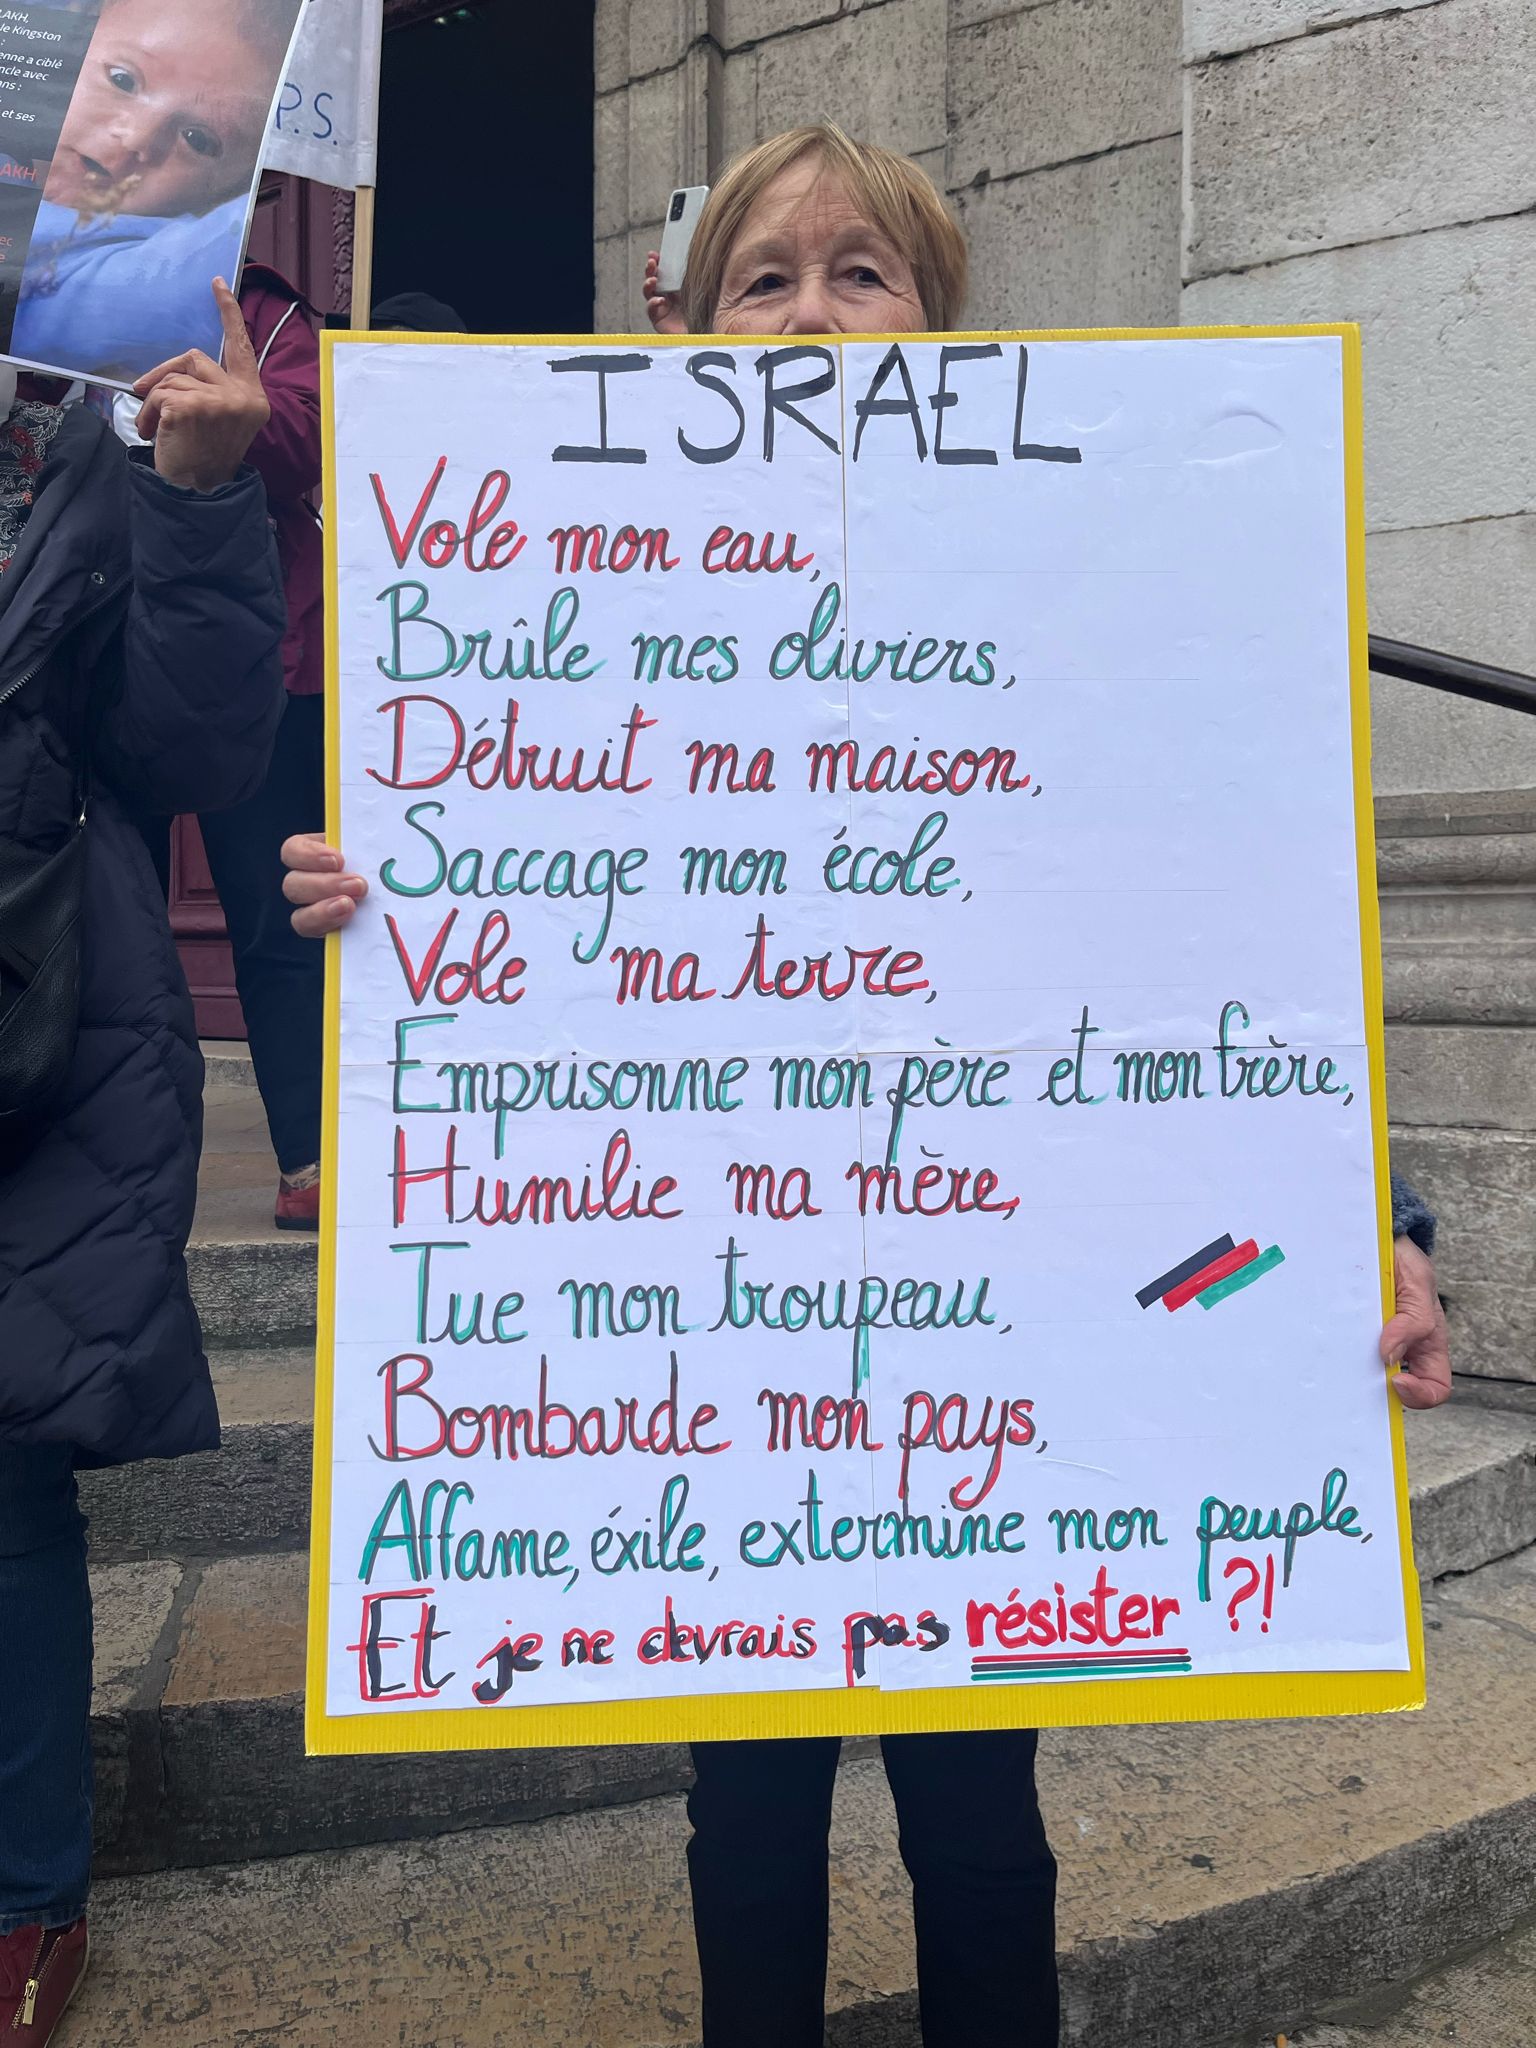 LAKH,
le Kingston
:
enne a ciblé
ncle avec
ans :
et ses
AKH
ec
e
P.S.
ISRAEL
Vole mon eau,
Brûle mes oliviers,
Détruit ma maison,
Saccage mon école,
Vole ma terre,
Emprisonne mon père et mon frère,
Humilie ma mère,
Tue mon troupeau,
Bombarde mon pays,
Affame, éxile, extermine mon peuple,
Et je ne devrais pas résister ?!